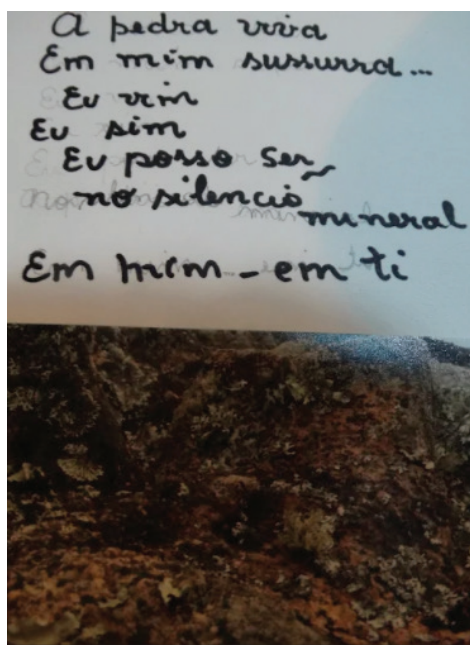 A pedra viva
Em mim sussurra...
Eu vim
Eu sim
Eu posso ser
no silencio mineral
Em mim - em ti